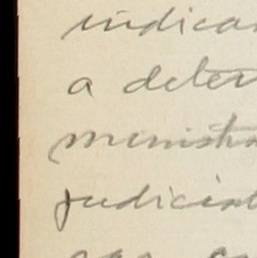 indica
a deter
ministra
judicial